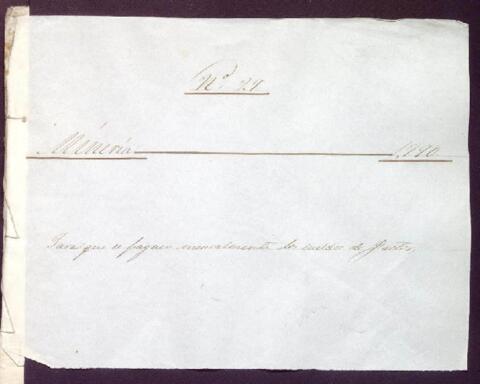 Nº 27
Minería 1,790.
Para que se paguen mensualmente los sueldos de